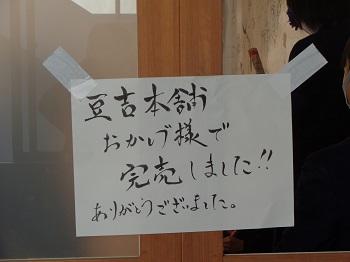 豆吉本舗
おかげ様で
完売しました!!
ありがとうございました。